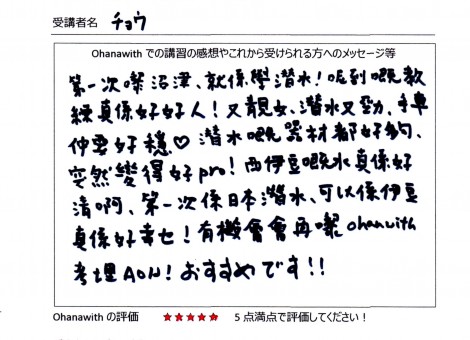 受講者名 チョウ
Ohanawith での講習の感想やこれから受けられる方へのメッセージ等
第一次嚟沼津、就係學潛水！呢到嘅教
練真係好好人！又靚女、潛水又勁、揸車
仲要好穩♡ 潛水嘅器材都好夠、
突然變得好pro！西伊豆嘅水真係好
清啊、第一次係日本潛水、可以係伊豆
真係好幸せ！有機會會再嚟ohanawith
考埋AOW！おすすめです！！
Ohanawith の評価 ★★★★★ 5 点満点で評価してください！